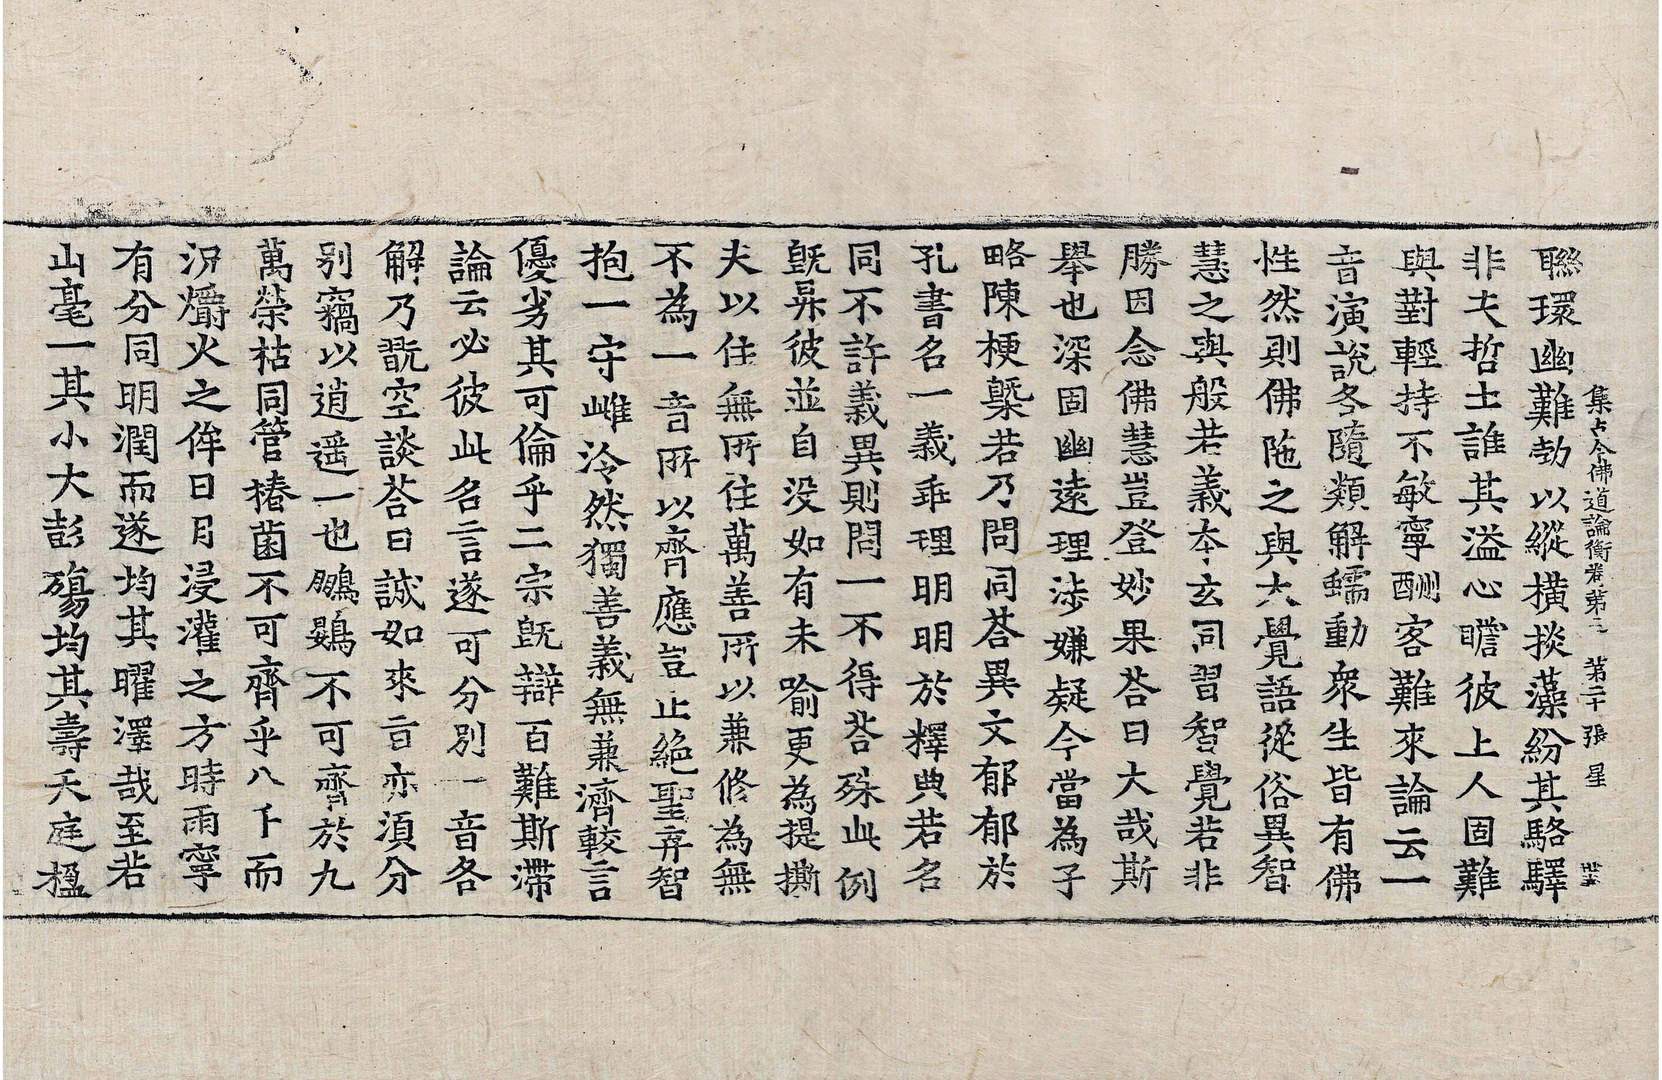 集古今佛道論衡卷第三 第二十張 星
聯環幽難勃以縱橫掞藻紛其駱驛
非夫哲士誰其溢心瞻彼上人固難
與對輕持不敏寧酬客難來論云一
音演說各隨類解蠕動衆生皆有佛
性然則佛陁之與大覺語從俗異智
慧之與般若義夲玄同習智覺若非
勝因念佛慧豈登妙果荅曰大哉斯
舉也深固幽遠理涉嫌疑今當為子
略陳梗槩若乃問同荅異文郁郁於
孔書名一義乖理明明於釋典若名
同不許義異則問一不得荅殊此例
旣昇彼並自没如有未喻更為提撕
夫以住無所住萬善所以兼修為無
不為一音所以齊應豈止絕聖弃智
抱一守雌泠然獨善義無兼濟較言
優劣其可倫乎二宗旣辯百難斯滯
論云必彼此名言遂可分別一音各
解乃翫空談荅曰誠如來旨亦須分
別竊以逍遥一也鵬鷃不可齊於九
萬榮枯同管椿菌不可齊乎八千而
況爝火之侔日月浸灌之方時雨寧
有分同明潤而遂均其曜澤哉至若
山毫一其小大彭殤均其壽夭庭楹